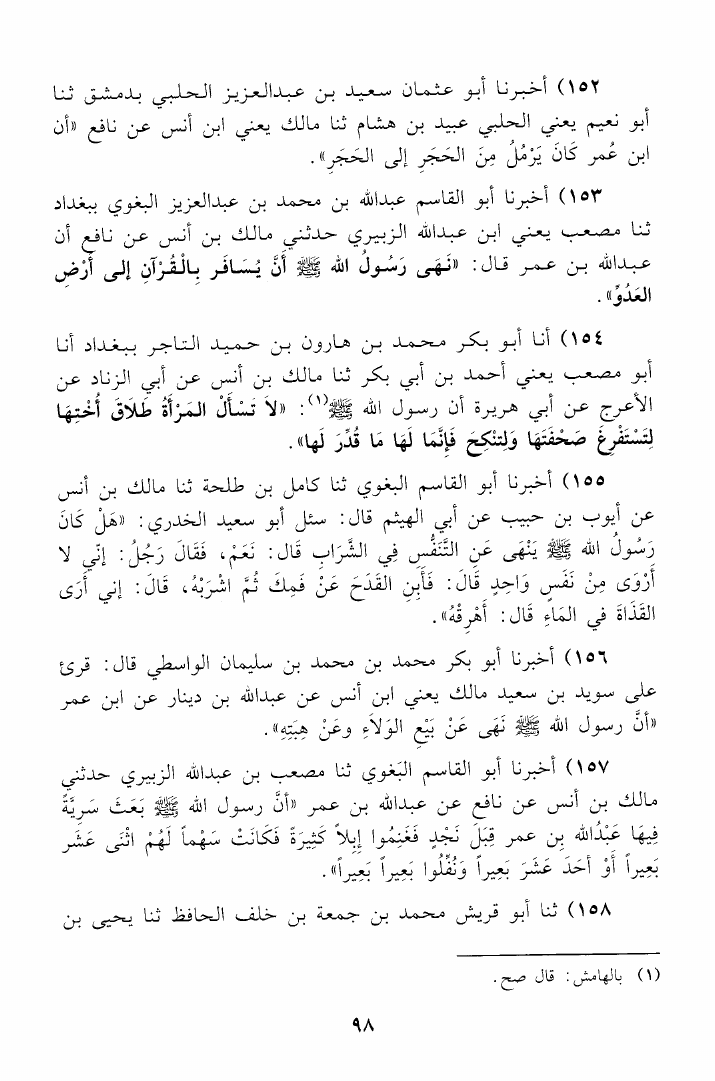 ١٥٢) أخبرنا أبو عثمان سعيد بن عبدالعزيز الحلبي بدمشق ثنا
أبو نعيم يعني الحلبي عبيد بن هشام ثنا مالك يعني ابن أنس عن نافع «أن
ابن عُمر كَانَ يَرْمُلُ مِنَ الحَجَرِ إلى الحَجَرِ».
١٥٣) أخبرنا أبو القاسم عبدالله بن محمد بن عبدالعزيز البغوي ببغداد
ثنا مصعب يعني ابن عبدالله الزبيري حدثني مالك بن أنس عن نافع أن
عبدالله بن عمر قال: «نَهَى رَسُولُ الله ﷺ أَنَّ يُسَافَر بِالْقُرْآنِ إلى أَرْضِ
العَدُوِّ».
١٥٤) أنا أبو بكر محمد بن هارون بن حميد التاجر ببغداد أنا
أبو مصعب يعني أحمد بن أبي بكر ثنا مالك بن أنس عن أبي الزناد عن
الأعرج عن أبي هريرة أن رسول الله ﷺ(١): «لاَ تَسْأَلْ المَرْأَةُ طَلَاقَ أُخْتِهَا
لِتَسْتَفْرِغَ صَحْفَتَهَا وَلِتنْكِحَ فَإِنَّمَا لَهَا مَا قُدِّرَ لَها».
١٥٥) أخبرنا أبو القاسم البغوي ثنا كامل بن طلحة ثنا مالك بن أنس
عن أيوب بن حبيب عن أبي الهيثم قال: سئل أبو سعيد الخدري: «هَلْ كَانَ
رَسُولُ الله ﷺ يَنْهَى عَنِ التَّنَفُّسِ فِي الشَّرَابِ قَال: نَعَمْ، فَقَالَ رَجُلُ: إنّي لا
أَرْوَى مِنْ نَفَسٍ وَاحِدٍ قَالَ: فَأَبِنِ القَدَحَ عَنْ فَمِكَ ثُمَّ اشْرَبْهُ، قَالَ: إني أَرَى
القَذَاةَ في المَاءِ قَال: أَهْرِقْهُ».
١٥٦) أخبرنا أبو بكر محمد بن محمد بن سليمان الواسطي قال: قرئ
على سويد بن سعيد مالك يعني ابن أنس عن عبدالله بن دينار عن ابن عمر
«أنَّ رسول الله ﷺ نَهَى عَنْ بَيْعِ الوَلَاءِ وعَنْ هِبَتِهِ».
١٥٧) أخبرنا أبو القاسم البَغوي ثنا مصعب بن عبدالله الزبيري حدثني
مالك بن أنس عن نافع عن عبدالله بن عمر «أنَّ رسول الله ﷺ بَعَثَ سَرِيَّةً
فِيهَا عَبْدُالله بِن عمر قِبَلَ نَجْدٍ فَغَنِمُوا إِبِلاً كَثِيرَةً فَكَانَتْ سَهْماً لَهُمْ اثْنَى عَشَر
بَعِيراً أَوْ أَحَدَ عَشَرَ بَعِيراً وَنُفِّلُوا بَعِيراً بَعِيراً».
١٥٨) ثنا أبو قريش محمد بن جمعة بن خلف الحافظ ثنا يحيى بن
(١) بالهامش: قال صح.
٩٨